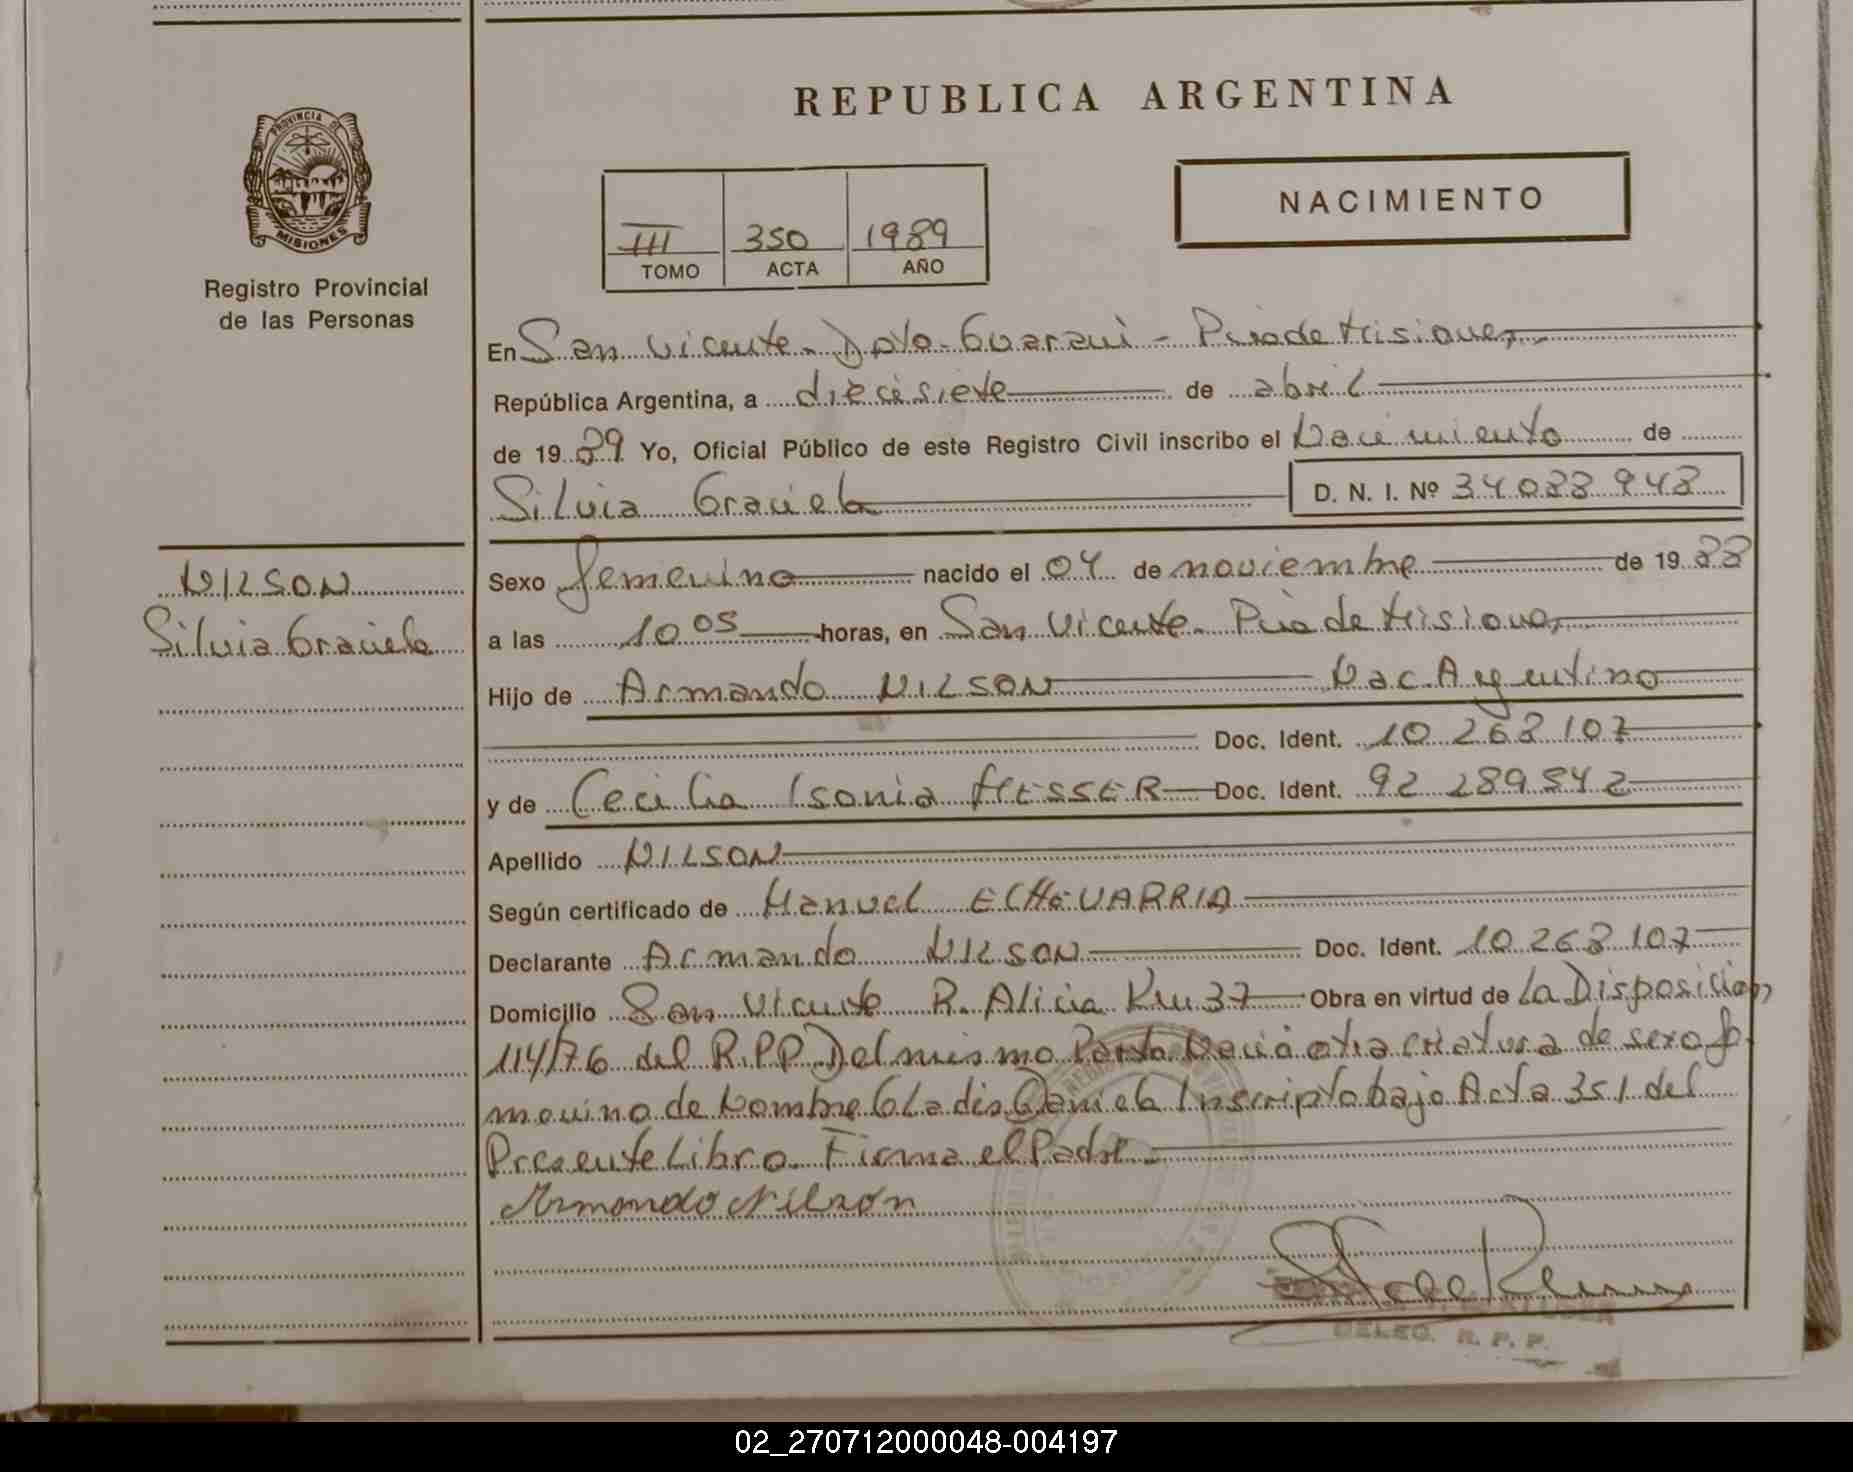 REPUBLICA ARGENTINA
PROVINCIA DE
MISIONES
Registro Provincial
de las Personas
III 350 1989
TOMO ACTA AÑO
NACIMIENTO
En San Vicente - Dpto - Guarani - Pcia de Misiones
República Argentina, a diecisiete de abril
de 1989 Yo, Oficial Público de este Registro Civil inscribo el Nacimiento de
Silvia Graciela D. N. I. Nº 34 088 948
NILSON
Silvia Graciela
Sexo femenino nacido el 04 de noviembre de 1988
a las 10 05 horas, en San Vicente - Pcia de Misiones
Hijo de Armando NILSON Nac. Argentino
Doc. Ident. 10 268 107
y de Cecilia Isonia MESSER Doc. Ident. 92 289 842
Apellido NILSON
Según certificado de Manuel ECHEVARRIA
Declarante Armando NILSON Doc. Ident. 10 268 107
Domicilio San Vicente R. Alicia Km 37 Obra en virtud de la Disposicion
114/76 del R.P.P. Del mismo Parto Nació otra criatura de sexo fe
menino de Nombre Gladis Daniela Inscripta bajo Acta 351 del
Presente Libro Firma el Padre
Armando Nilson
DELEG. R. P. P.
02_270712000048-004197